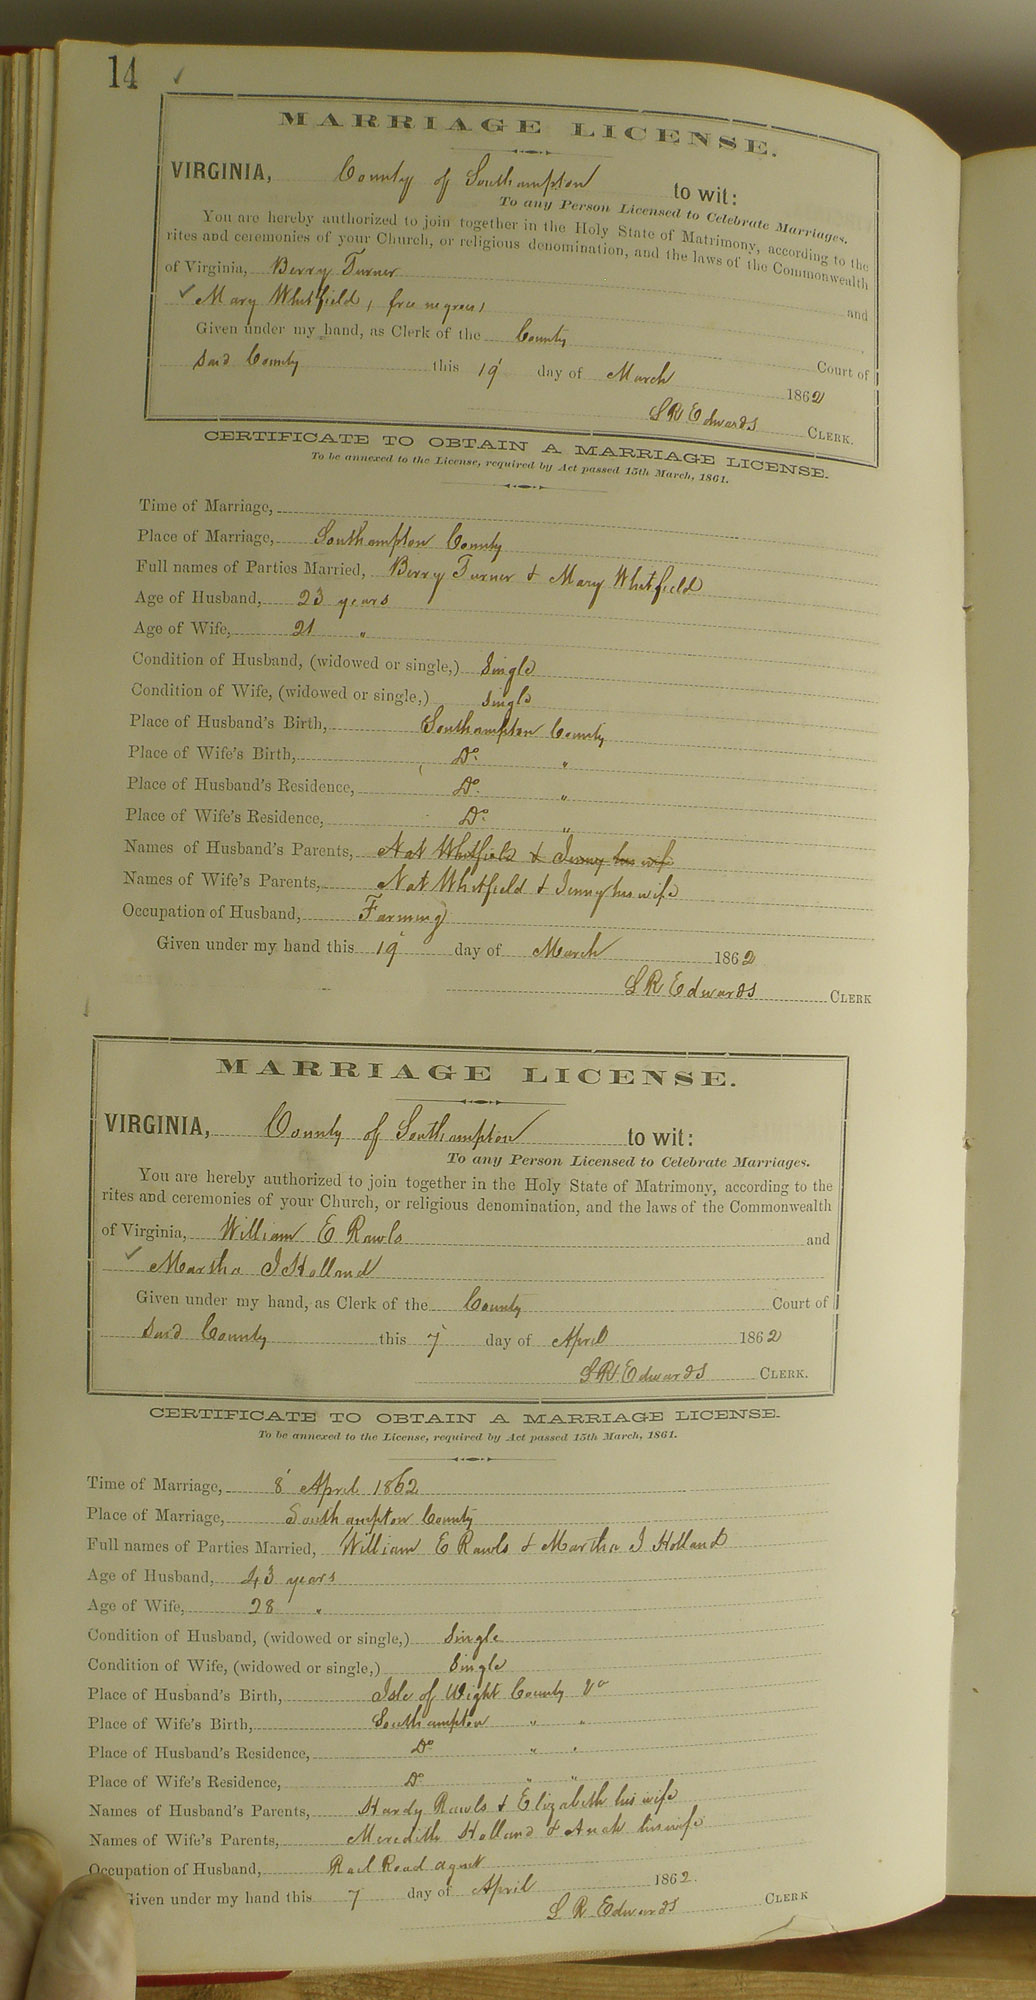 14
MARRIAGE LICENSE.
VIRGINIA, County of Southampton to wit:
To any Person Licensed to Celebrate Marriages.
You are hereby authorized to join together in the Holy State of Matrimony, according to the
rites and ceremonies of your Church, or religious denomination, and the laws of the Commonwealth
of Virginia, Berry Turner and
Mary Whitfield, free negroes,
Given under my hand, as Clerk of the County Court of
said County this 19 day of March 1862
L R Edwards CLERK.
CERTIFICATE TO OBTAIN A MARRIAGE LICENSE.
To be annexed to the License, required by Act passed 15th March, 1861.
Time of Marriage,
Place of Marriage, Southampton County
Full names of Parties Married, Berry Turner & Mary Whitfield
Age of Husband, 23 years
Age of Wife, 21 "
Condition of Husband, (widowed or single,) Single
Condition of Wife, (widowed or single,) Single
Place of Husband's Birth, Southampton County
Place of Wife's Birth, Do "
Place of Husband's Residence, Do "
Place of Wife's Residence, Do "
Names of Husband's Parents, Nat Whitfield & Jenny his wife
Names of Wife's Parents, Nat Whitfield & Jenny his wife
Occupation of Husband, Farming
Given under my hand this 19 day of March 1862
L R Edwards CLERK
MARRIAGE LICENSE.
VIRGINIA, County of Southampton to wit:
To any Person Licensed to Celebrate Marriages.
You are hereby authorized to join together in the Holy State of Matrimony, according to the
rites and ceremonies of your Church, or religious denomination, and the laws of the Commonwealth
of Virginia, William E Rawls and
Martha J Holland
Given under my hand, as Clerk of the County Court of
said County this 7 day of April 1862
L R Edwards CLERK.
CERTIFICATE TO OBTAIN A MARRIAGE LICENSE.
To be annexed to the License, required by Act passed 15th March, 1861.
Time of Marriage, 8 April 1862
Place of Marriage, Southampton County
Full names of Parties Married, William E Rawls & Martha J Holland
Age of Husband, 43 years
Age of Wife, 28 "
Condition of Husband, (widowed or single,) Single
Condition of Wife, (widowed or single,) Single
Place of Husband's Birth, Isle of Wight County Va
Place of Wife's Birth, Southampton " "
Place of Husband's Residence, Do " "
Place of Wife's Residence, Do " "
Names of Husband's Parents, Hardy Rawls & Elizabeth his wife
Names of Wife's Parents, Meredith Holland & his wife
Occupation of Husband, Rail Road agent
Given under my hand this 7 day of April 1862.
L R Edwards CLERK